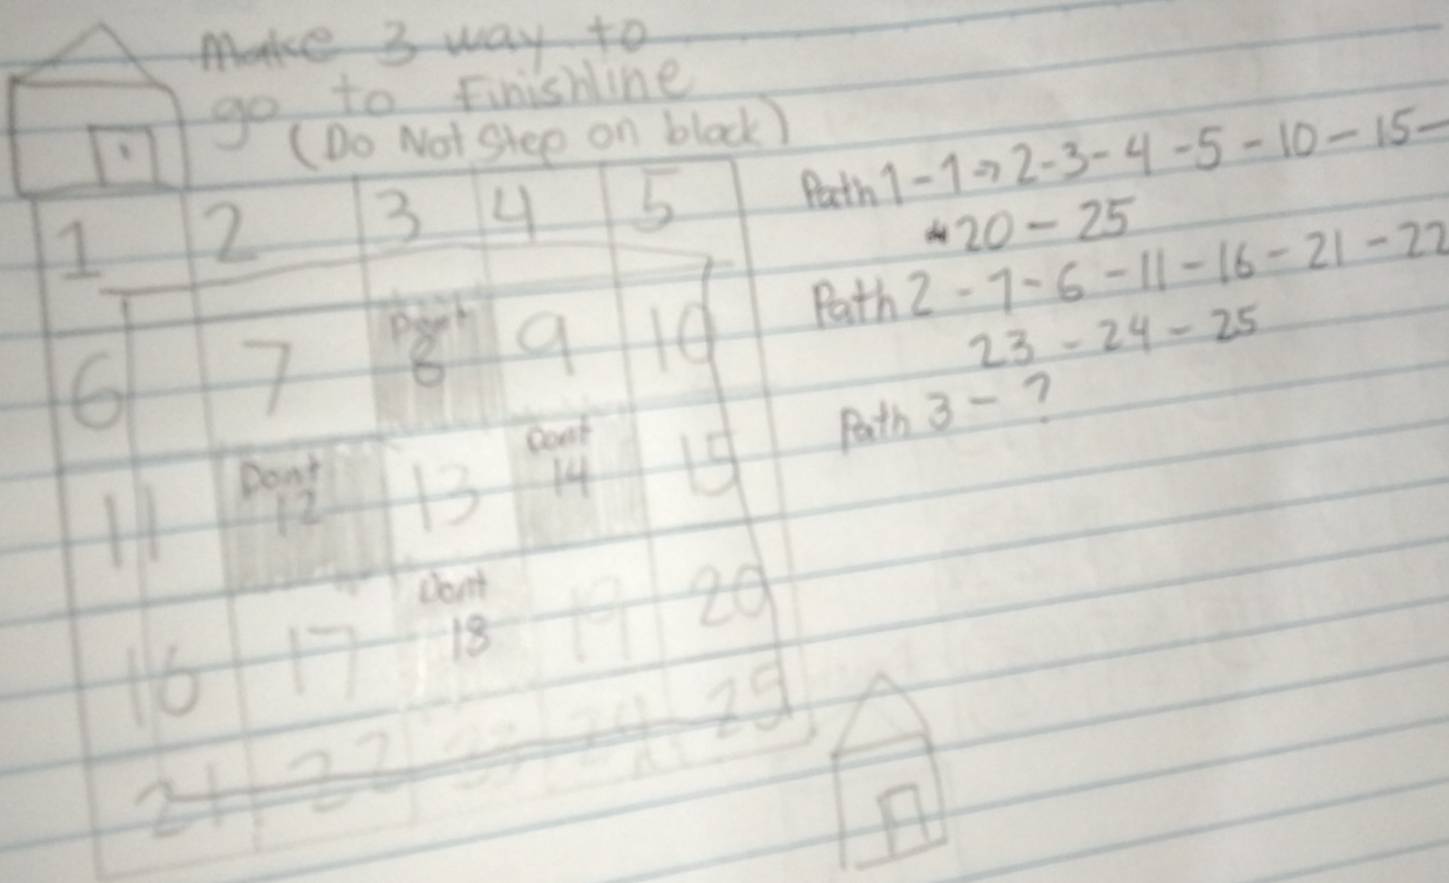 Make 3 way to
go to Finishline
(Do Not Step on black)
1 2 3 4 5
6 7 Dont 8 9 10
11 Dont 12 13 Dont 14 15
16 17 Dont 18 19 20
21 22 23 24 25
Path 1 - 1 → 2 - 3 - 4 - 5 - 10 - 15 -
20 - 25
Path 2 - 1 - 6 - 11 - 16 - 21 - 22
23 - 24 - 25
Path 3 - ?